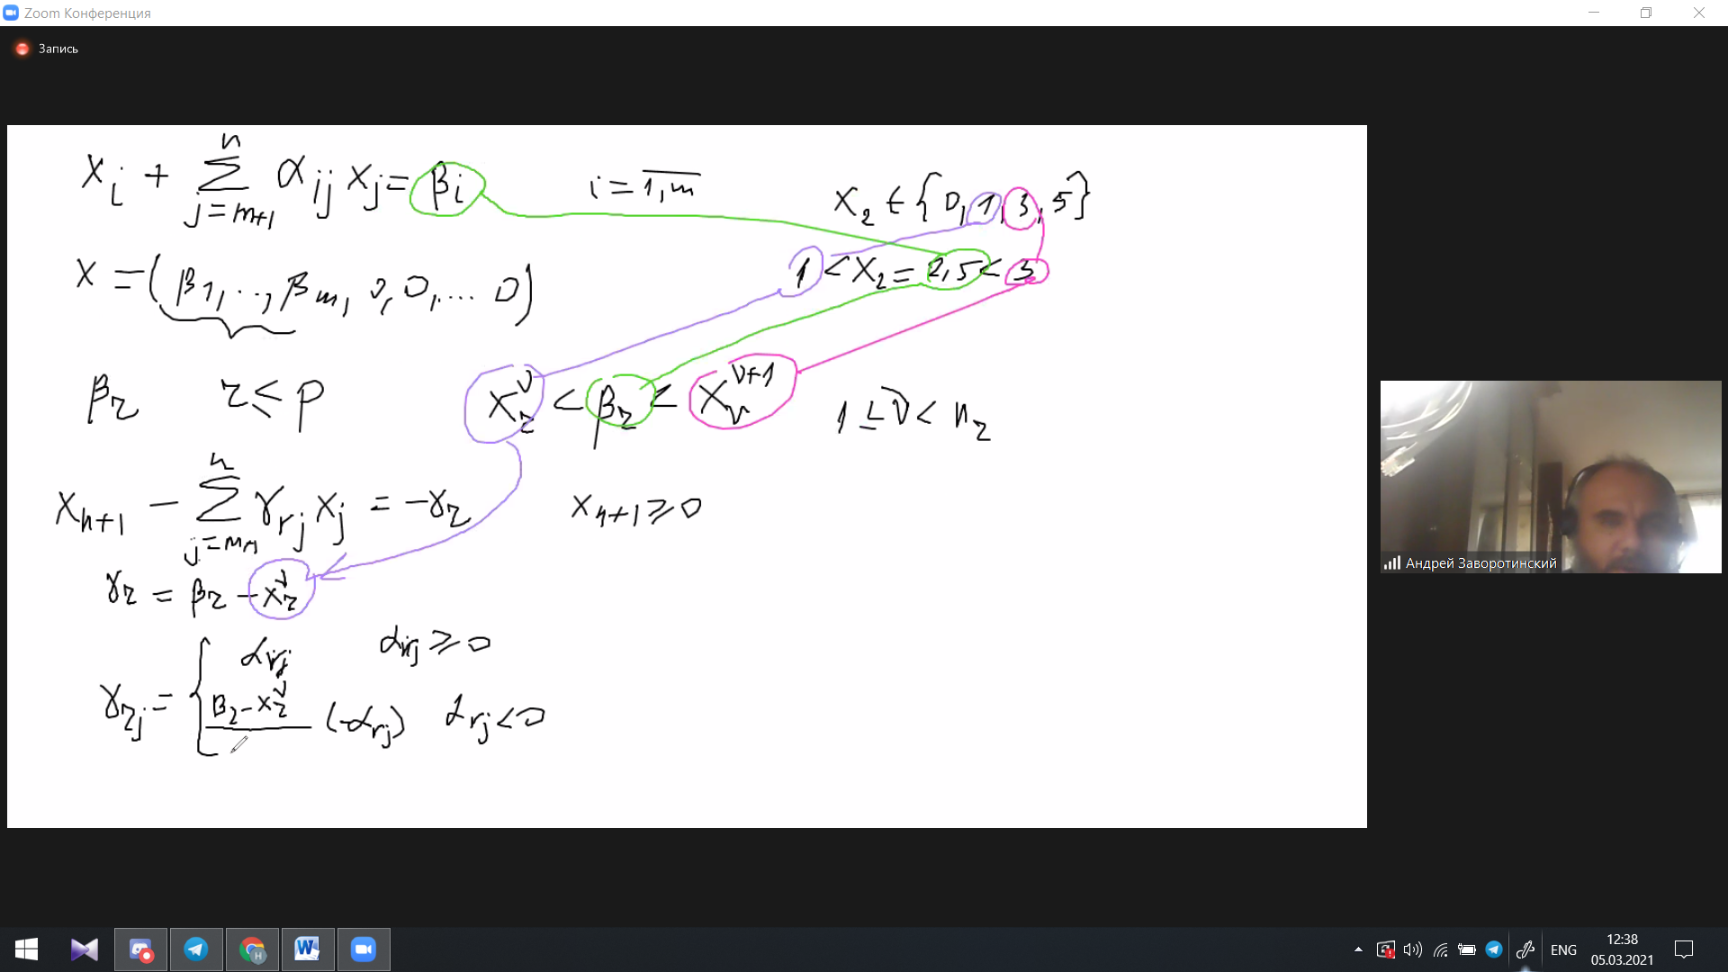 Zoom Конференция
Запись
x_i + Σ_{j=m+1}^{n} α_{ij} x_j = β_i    i = \overline{1,m}
x_2 ∈ {0, 1, 3, 5}
1 < x_2 = 2,5 < 3
x = (β_1, .., β_m, 0, 0, ... 0)
β_r    r ≤ p    x_r^ν < β_r ≤ x_r^{ν+1}    1 ≤ ν < n_r
x_{n+1} − Σ_{j=m+1}^{n} γ_{rj} x_j = −γ_r    x_{n+1} ≥ 0
γ_r = β_r − x_r^ν
γ_{rj} = { α_{rj}    α_{rj} ≥ 0
β_r − x_r^ν (−α_{rj})    α_{rj} < 0
Андрей Заворотинский
ENG
12:38
05.03.2021